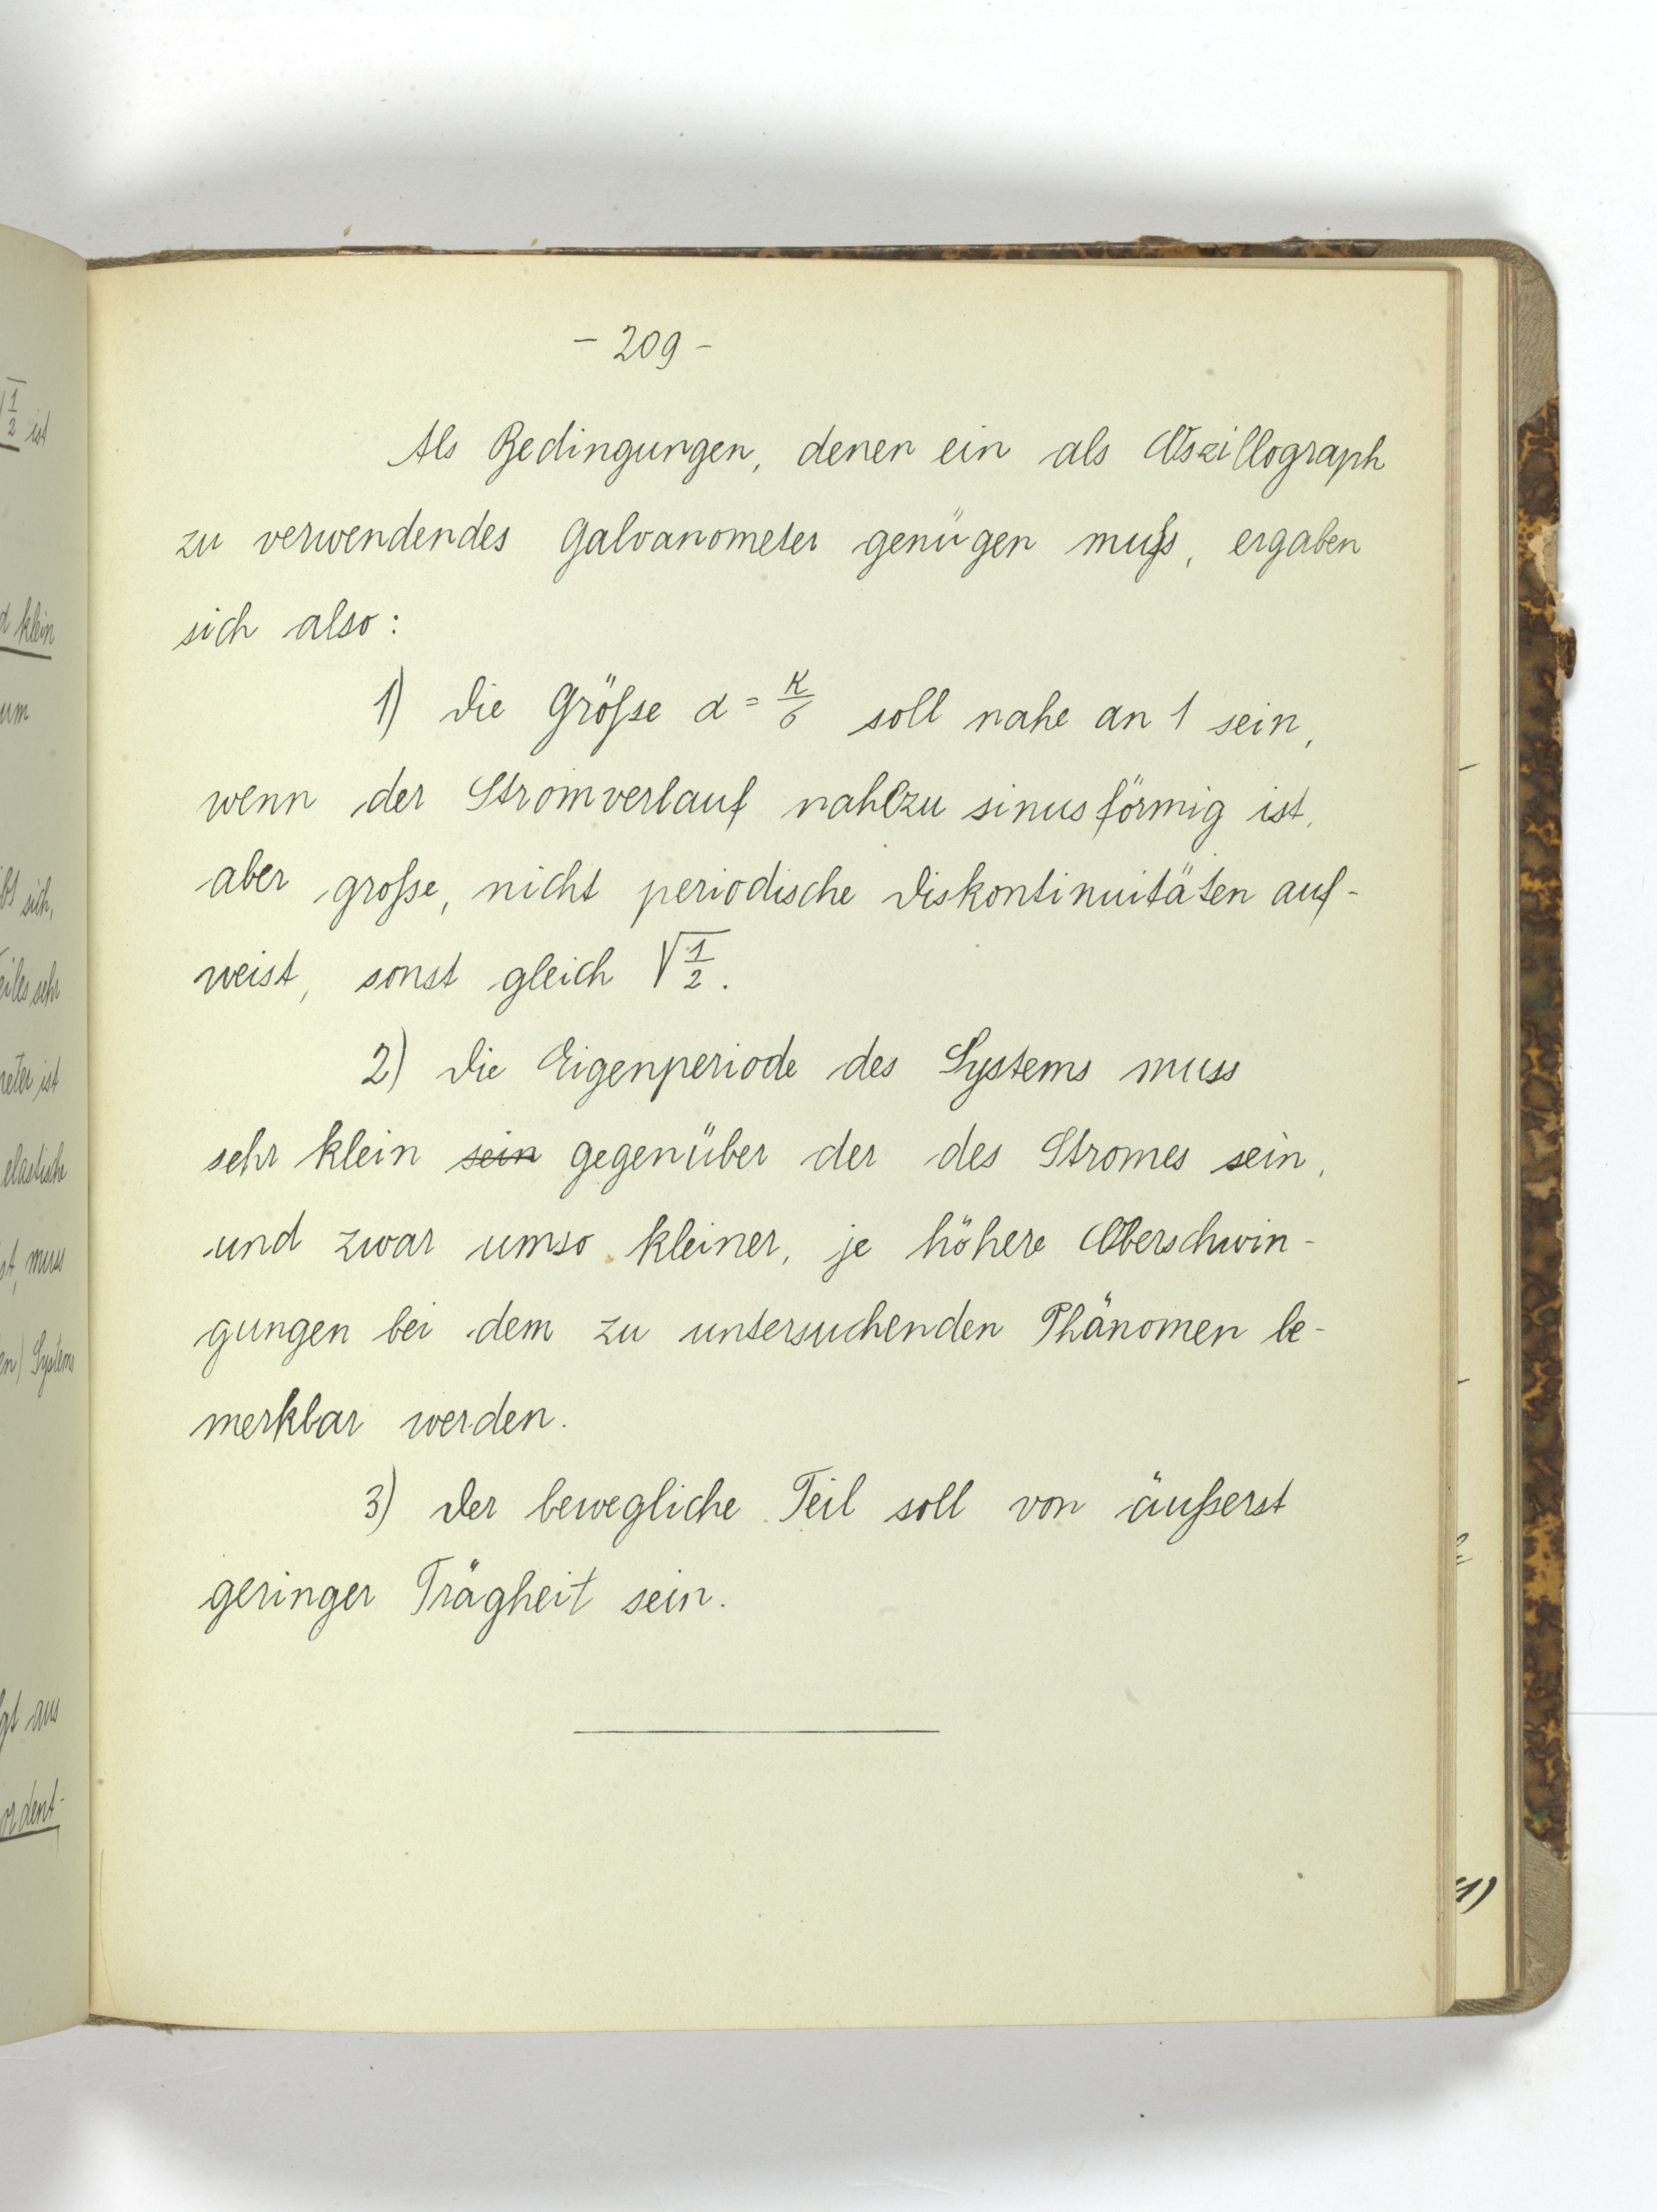 - 209 -
Als Bedingungen, denen ein als Oszillograph
zu verwendendes Galvanometer genügen muß, ergaben
sich also:
1) Die Größe α = κ/σ soll nahe an 1 sein,
wenn der Stromverlauf nahezu sinusförmig ist,
aber große, nicht periodische Diskontinuitäten auf-
weist, sonst gleich √1/2.
2) Die Eigenperiode des Systems muss
sehr klein sein gegenüber der des Stromes sein,
und zwar umso kleiner, je höhere Oberschwin-
gungen bei dem zu untersuchenden Phänomen be-
merkbar werden.
3) Der bewegliche Teil soll von äußerst
geringer Trägheit sein.
√1/2 ist
klein
um
sich,
sehr
ist
elastische
muss
Systems
aus